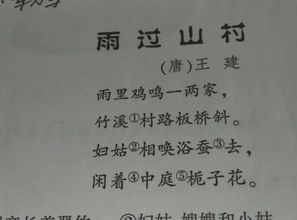 雨过山村
(唐)王 建
雨里鸡鸣一两家，
竹溪①村路板桥斜。
妇姑②相唤浴蚕③去，
闲着④中庭⑤栀子花。
②妇姑 嫂嫂和小姑